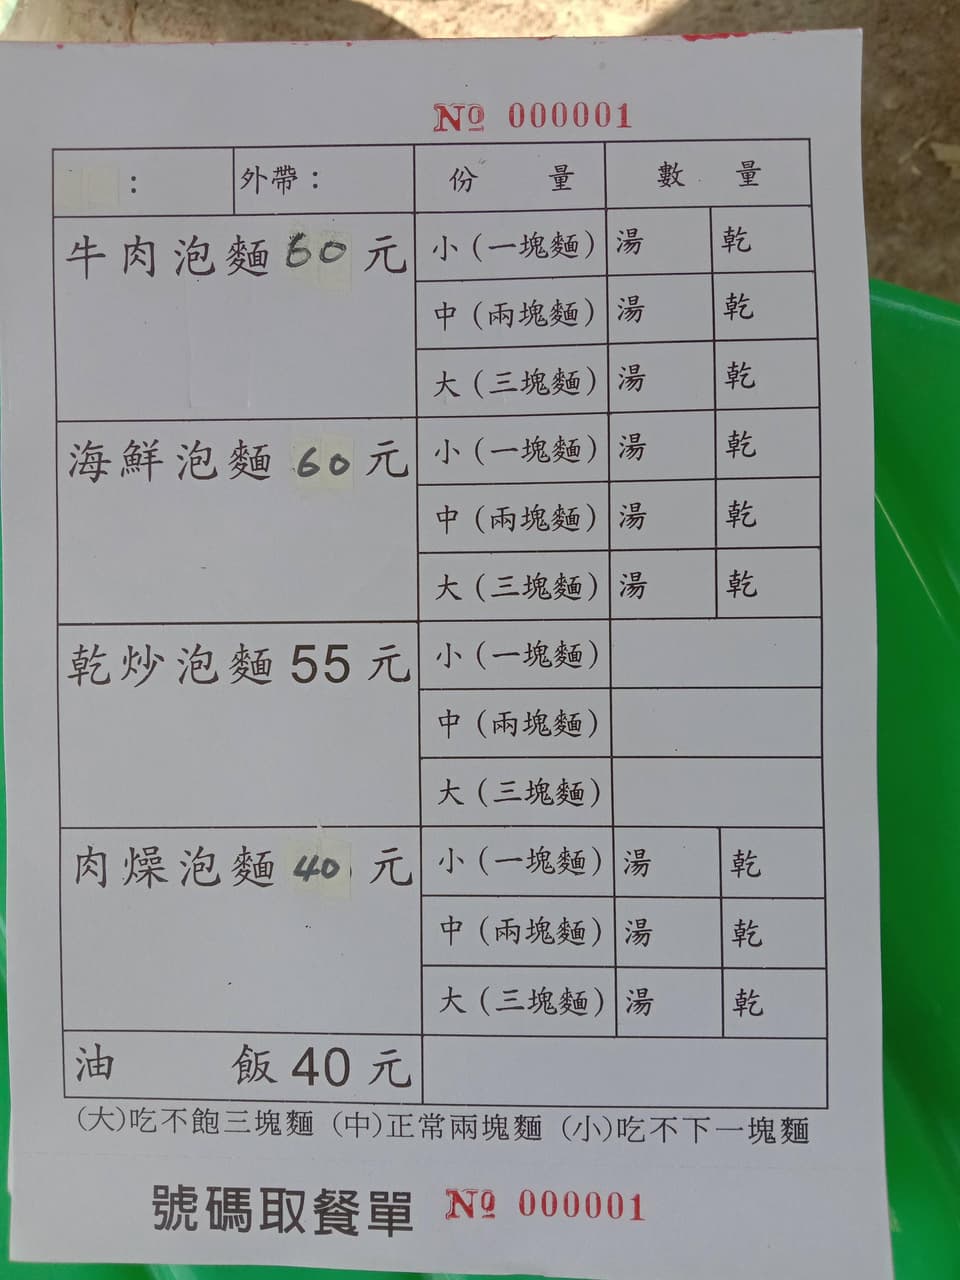 № 000001
： 外帶： 份 量 數 量
牛肉泡麵60元 小(一塊麵) 湯 乾
中(兩塊麵) 湯 乾
大(三塊麵) 湯 乾
海鮮泡麵60元 小(一塊麵) 湯 乾
中(兩塊麵) 湯 乾
大(三塊麵) 湯 乾
乾炒泡麵55元 小(一塊麵)
中(兩塊麵)
大(三塊麵)
肉燥泡麵40元 小(一塊麵) 湯 乾
中(兩塊麵) 湯 乾
大(三塊麵) 湯 乾
油 飯40元
(大)吃不飽三塊麵 (中)正常兩塊麵 (小)吃不下一塊麵
號碼取餐單 № 000001